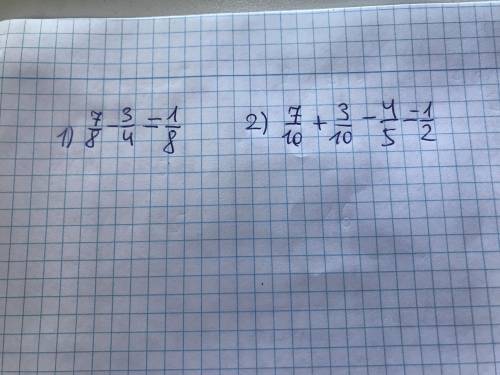 1) 7/8 - 3/4 = 1/8
2) 7/10 + 3/10 - 4/5 = 1/2